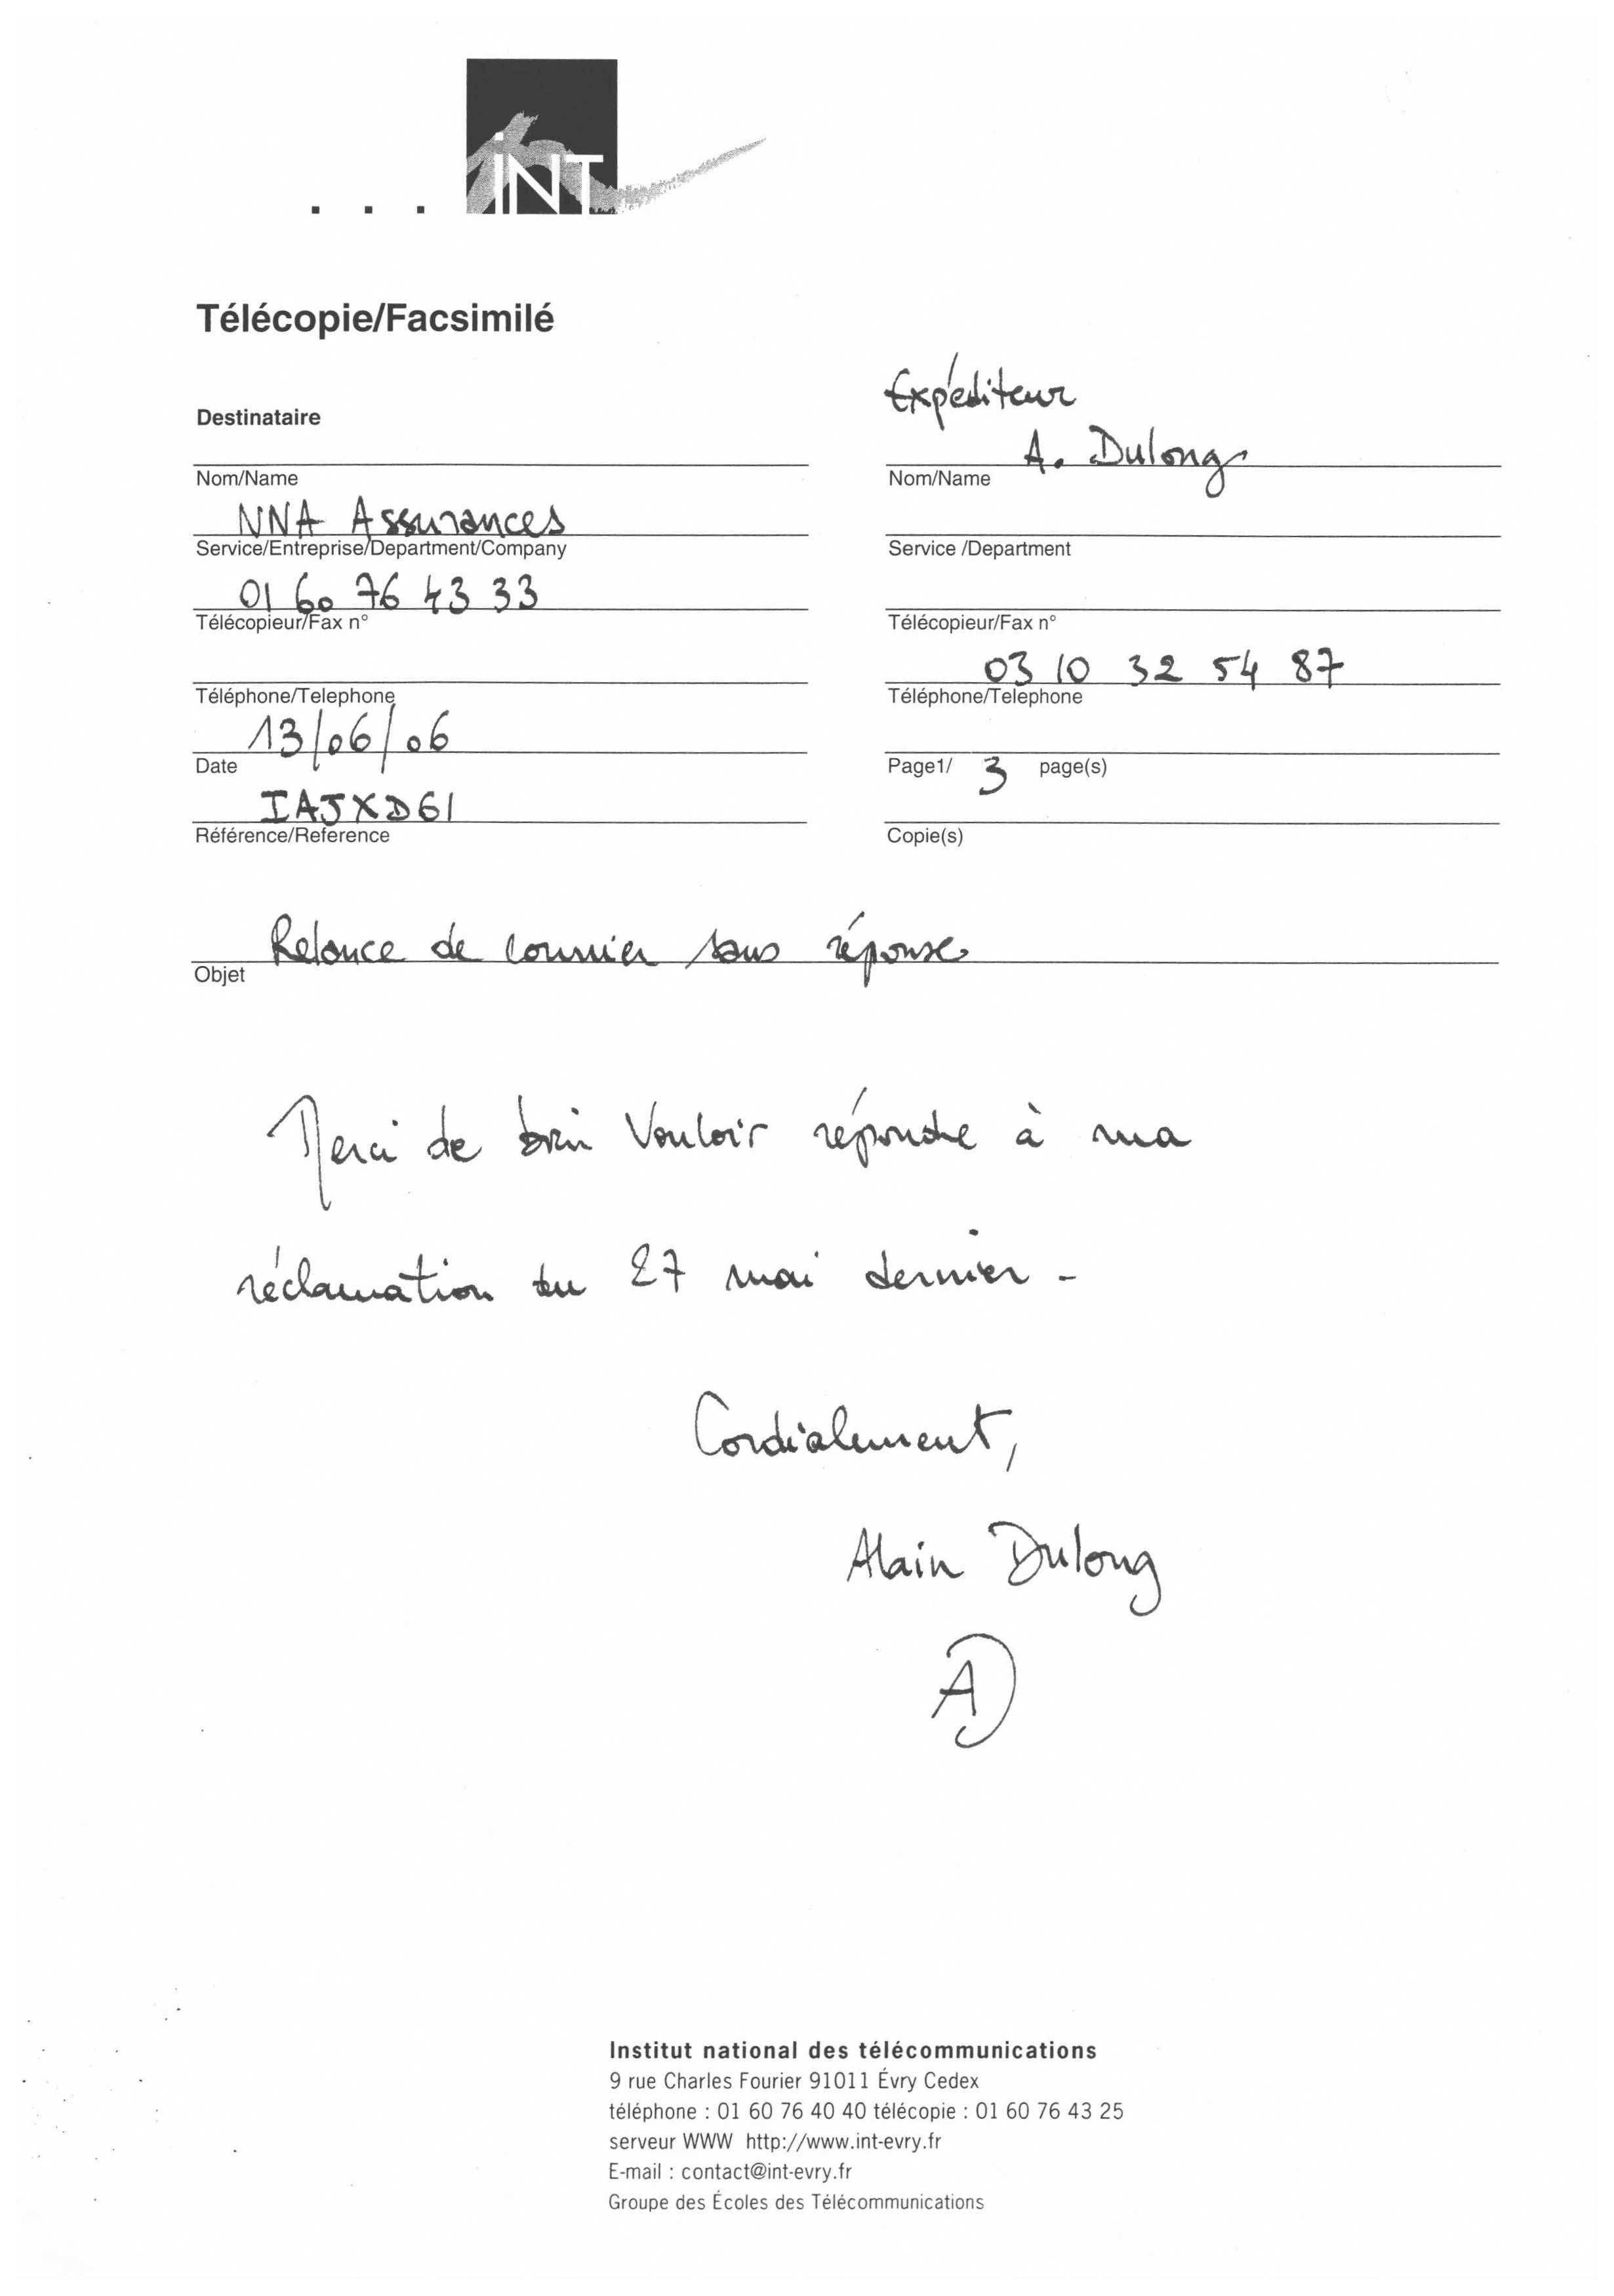 iNT
Télécopie/Facsimilé
Destinataire
Nom/Name
NNA Assurances
Service/Entreprise/Department/Company
01 60 76 43 33
Télécopieur/Fax n°
Téléphone/Telephone
13/06/06
Date
IAJXD61
Référence/Reference
Expéditeur
A. Dulong
Nom/Name
Service /Department
Télécopieur/Fax n°
03 10 32 54 87
Téléphone/Telephone
Page1/ 3 page(s)
Copie(s)
Relance de courrier sans réponse
Objet
Merci de bien vouloir répondre à ma
réclamation du 27 mai dernier -
Cordialement,
Alain Dulong
AD
Institut national des télécommunications
9 rue Charles Fourier 91011 Évry Cedex
téléphone : 01 60 76 40 40 télécopie : 01 60 76 43 25
serveur WWW http://www.int-evry.fr
E-mail : contact@int-evry.fr
Groupe des Écoles des Télécommunications